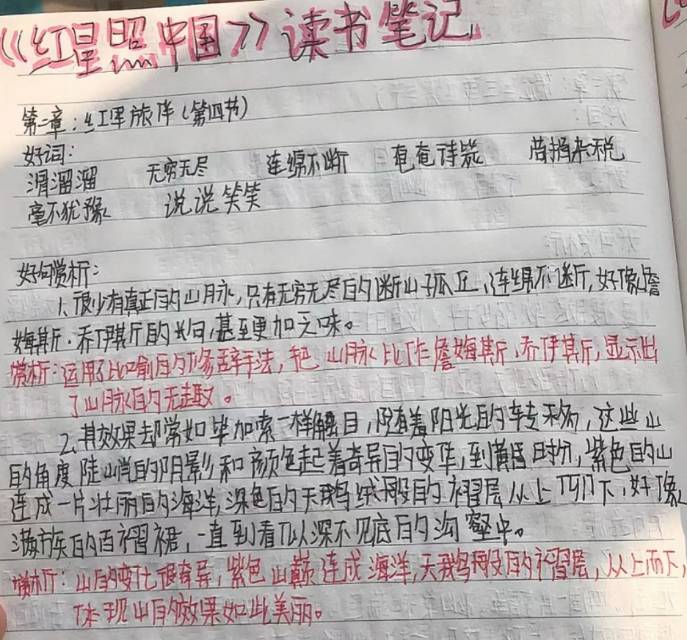 《红星照中国》读书笔记
第二章：红军旅伴（第四节）
好词：
滑溜溜 无穷无尽 连绵不断 苛捐杂税
毫不犹豫 说说笑笑
好句赏析：
1、很少有真正的山脉，只有无穷无尽的断山孤丘、连绵不断，好像詹
姆斯·乔伊斯的长句，甚至更加乏味。
赏析：运用了比喻的修辞手法，把山脉比作詹姆斯·乔伊斯，显示出
了山脉的无趣。
2、其效果却常如毕加索一样触目，随着阳光的转移，这些山
的角度陡峭的阴影和颜色起着奇异的变华，到黄昏时分，紫色的山
连成一片壮丽的海洋，深色的天鹅绒般的褶层从上而下，好像
满族的百褶裙，一直到看似深不见底的沟壑中。
赏析：山的变化很奇异，紫色山巅连成海洋，天鹅般的褶层，从上而下，
体现山的效果如此美丽。